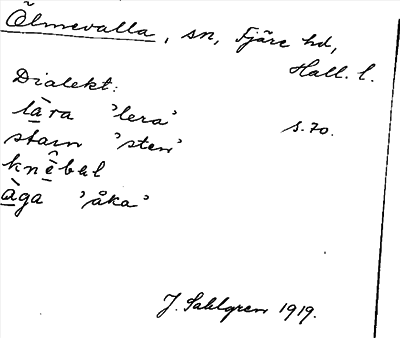 Ölmevalla, sn, Fjäre hd,
Hall. l.
Dialekt:
làra 'lera' s. 70.
stain 'sten'
knêbəl
àga 'åka'
J. Sahlgren 1919.